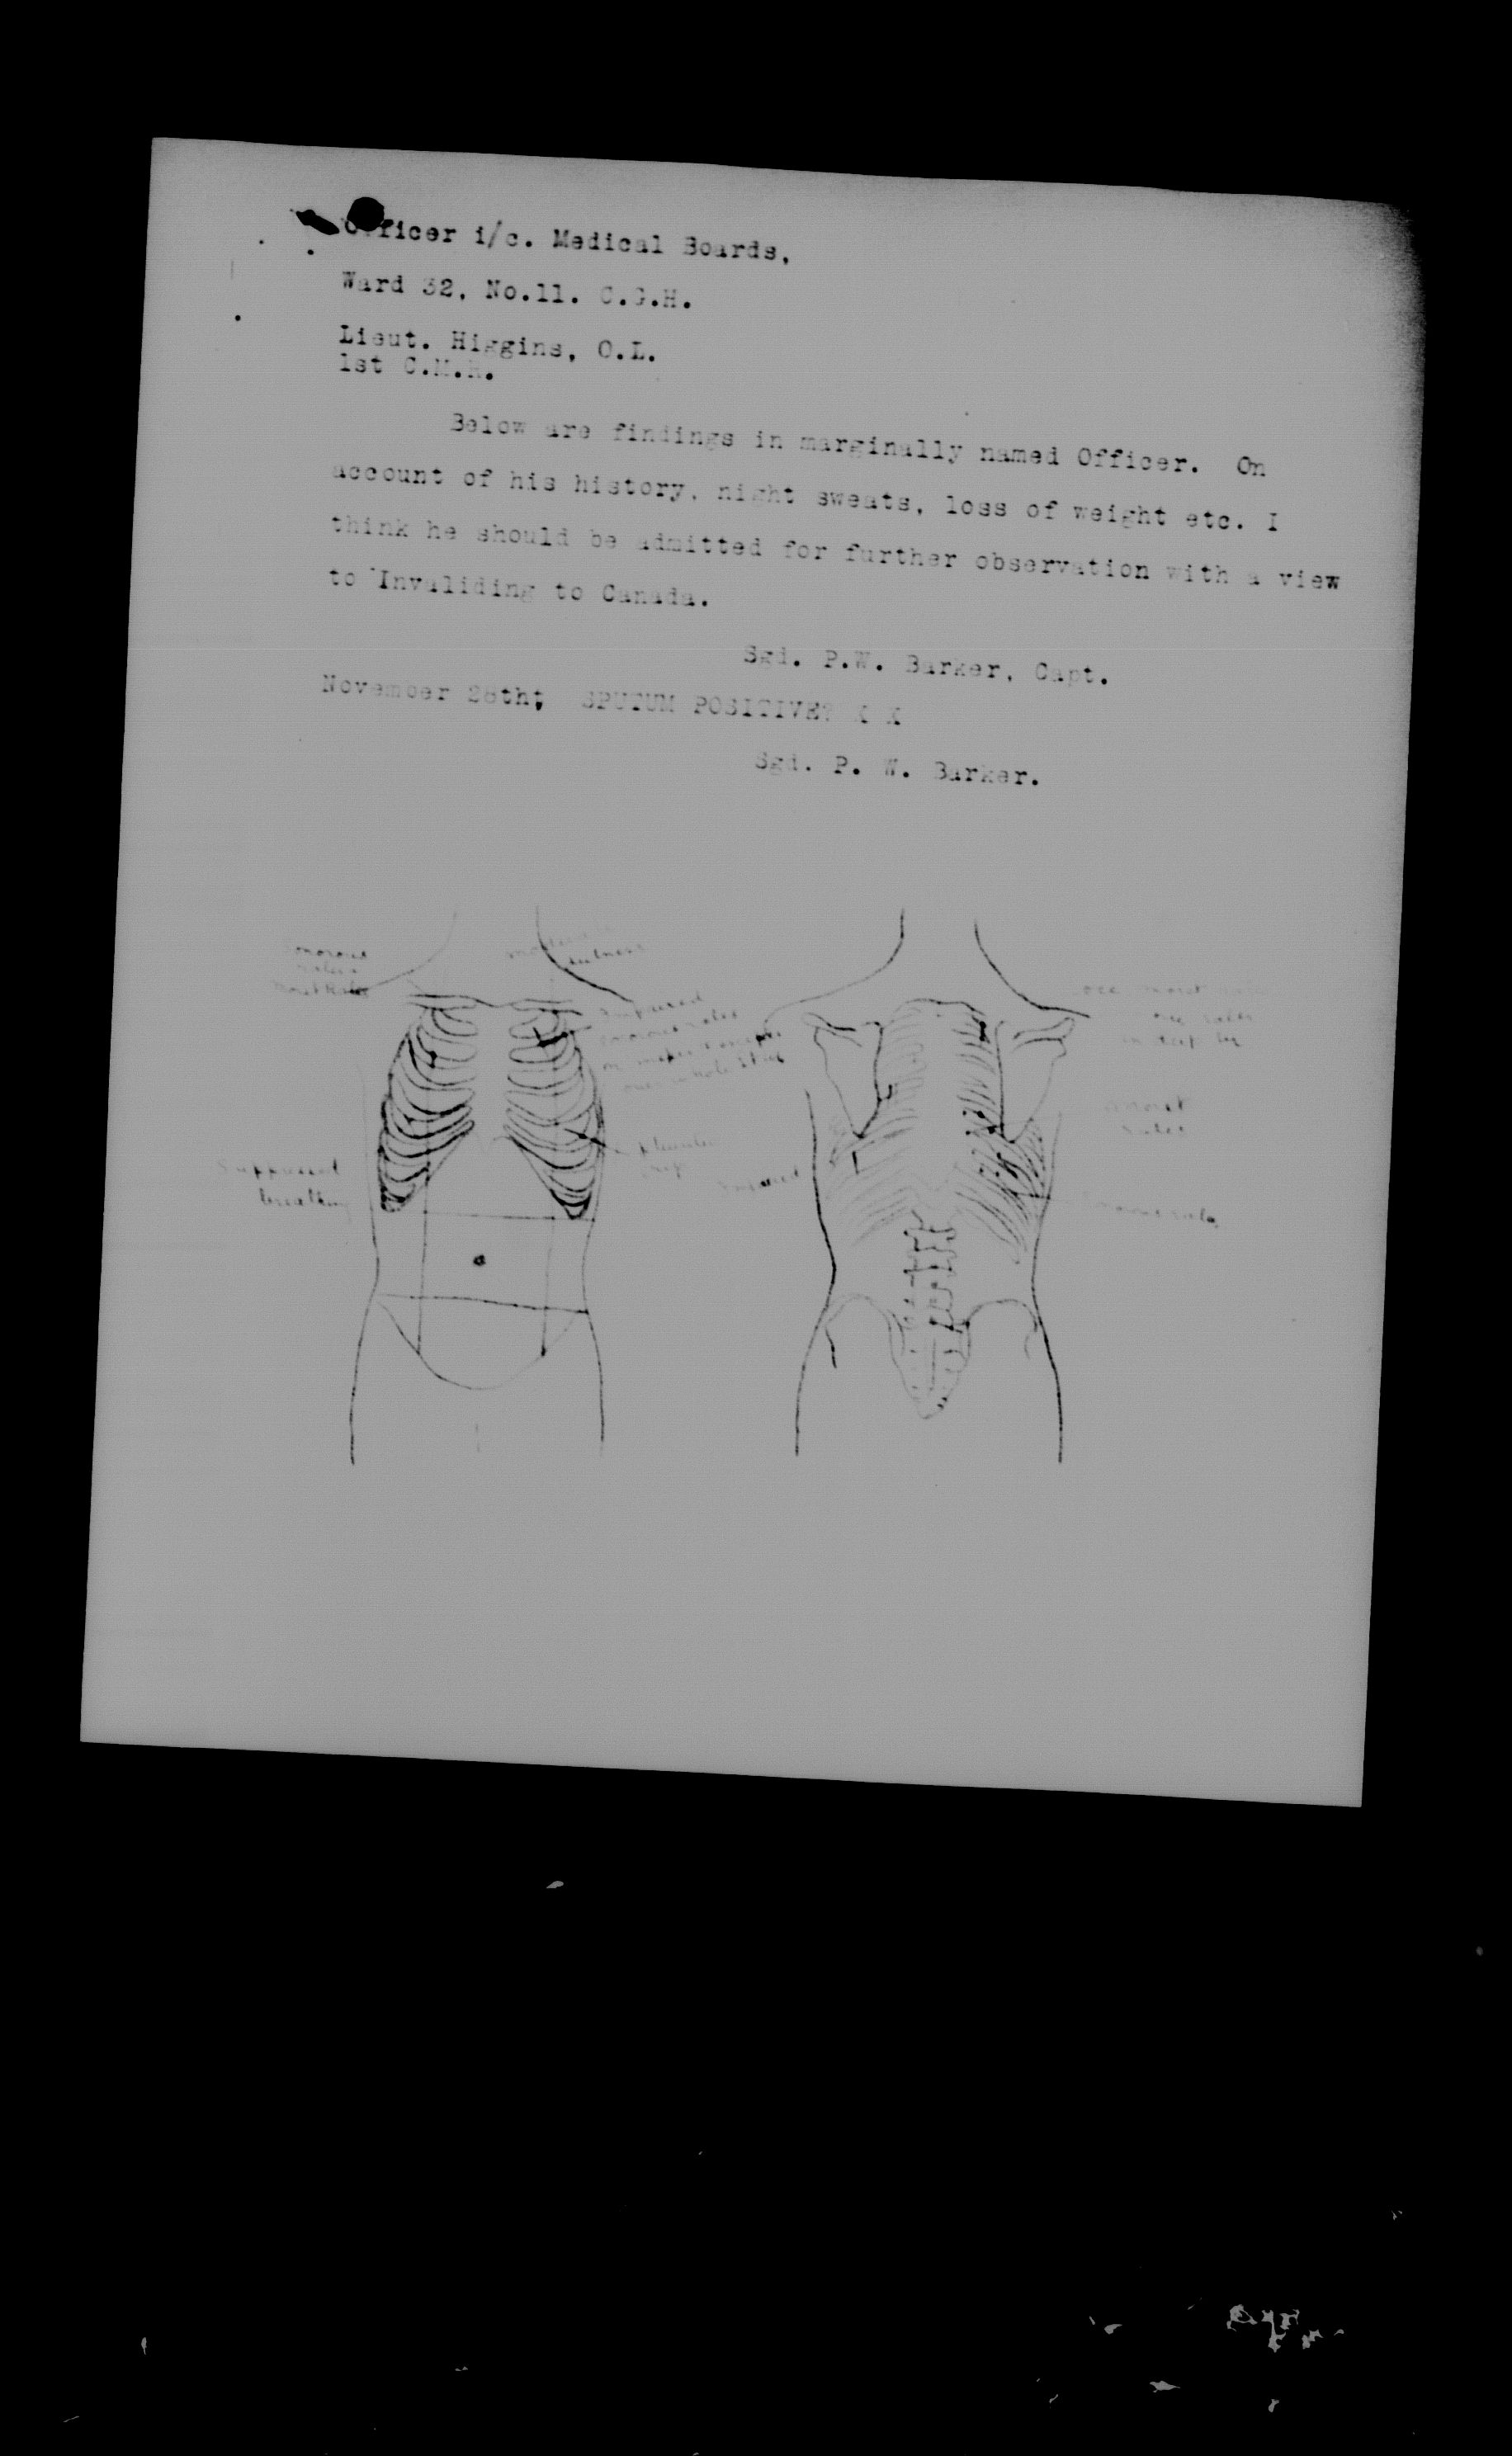 Officer i/c. Medical Boards,
Ward 32, No.11. C.G.H.
Lieut. Higgins, O.L.
1st C.M.R.
Below are findings in marginally named Officer. On
account of his history, night sweats, loss of weight etc. I
think he should be admitted for further observation with a view
to Invaliding to Canada.
Sgd. P.W. Barker, Capt.
November 28th; SPUTUM POSITIVE? X X
Sgd. P. W. Barker.
sonorous
rales
moist Rales
dulness
sonorous rales
over whole
Suppressed
breathing
moist
rales